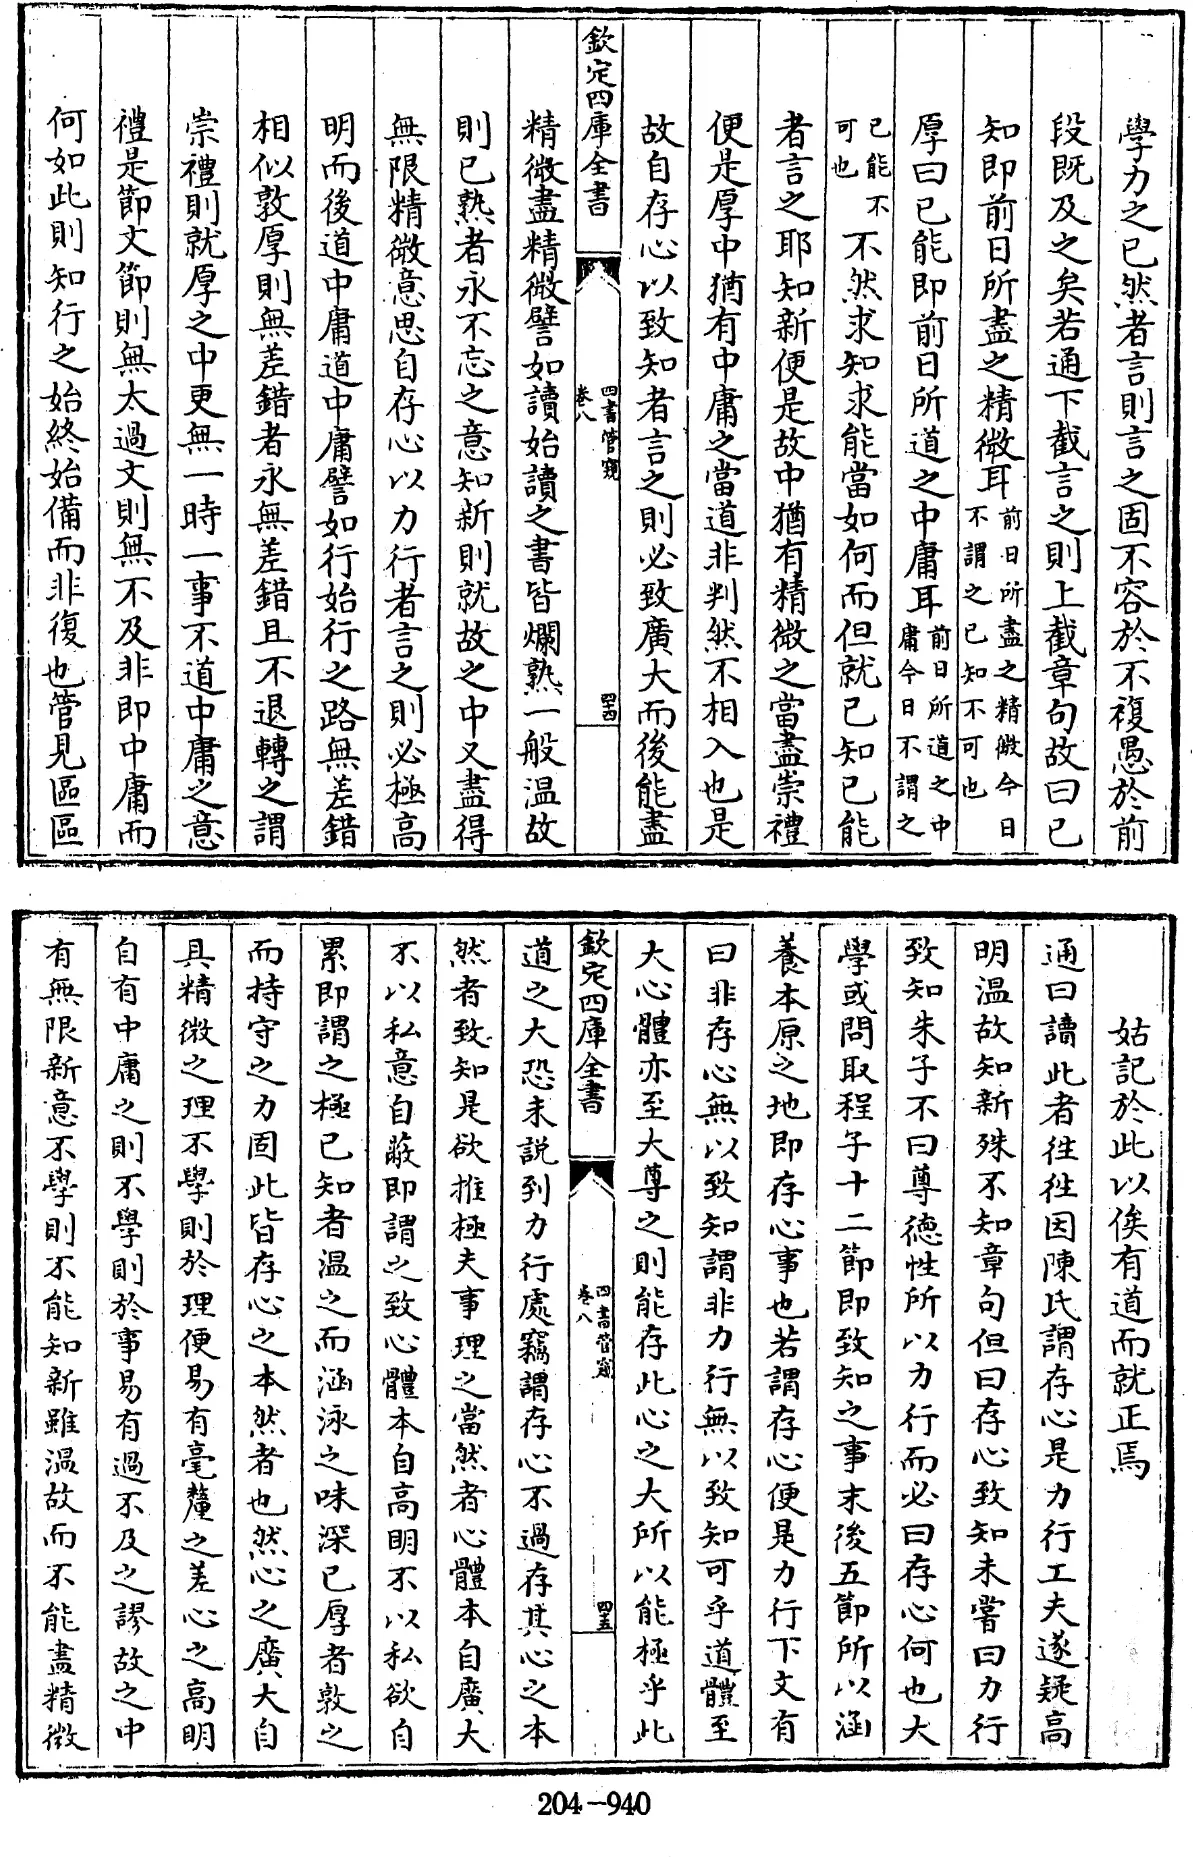 學力之已然者言則言之固不容於不複愚於前
段既及之矣若通下截言之則上截章句故曰已
知即前日所盡之精微耳前日所盡之精微今日不謂之已知不可也
厚曰已能即前日所道之中庸耳前日所道之中庸今日不謂之
已能不可也不然求知求能當如何而但就已知已能
者言之耶知新便是故中猶有精微之當盡崇禮
便是厚中猶有中庸之當道非判然不相入也是
故自存心以致知者言之則必致廣大而後能盡
欽定四庫全書
四書管窺
卷八
四十四
精微盡精微譬如讀始讀之書皆爛熟一般温故
則已熟者永不忘之意知新則就故之中又盡得
無限精微意思自存心以力行者言之則必極高
明而後道中庸道中庸譬如行始行之路無差錯
相似敦厚則無差錯者永無差錯且不退轉之謂
崇禮則就厚之中更無一時一事不道中庸之意
禮是節文節則無太過文則無不及非即中庸而
何如此則知行之始終始備而非復也管見區區
姑記於此以俟有道而就正焉
通曰讀此者徃徃因陳氏謂存心是力行工夫遂疑高
明温故知新殊不知章句但曰存心致知未嘗曰力行
致知朱子不曰尊徳性所以力行而必曰存心何也大
學或問取程子十二節即致知之事末後五節所以涵
養本原之地即存心事也若謂存心便是力行下文有
曰非存心無以致知謂非力行無以致知可乎道體至
大心體亦至大尊之則能存此心之大所以能極乎此
欽定四庫全書
四書管窺
卷八
四十五
道之大恐未説到力行處竊謂存心不過存其心之本
然者致知是欲推極夫事理之當然者心體本自廣大
不以私意自蔽即謂之致心體本自高明不以私欲自
累即謂之極已知者温之而涵泳之味深已厚者敦之
而持守之力固此皆存心之本然者也然心之廣大自
具精微之理不學則於理便易有毫釐之差心之高明
自有中庸之則不學則於事易有過不及之謬故之中
有無限新意不學則不能知新雖温故而不能盡精微
204-940